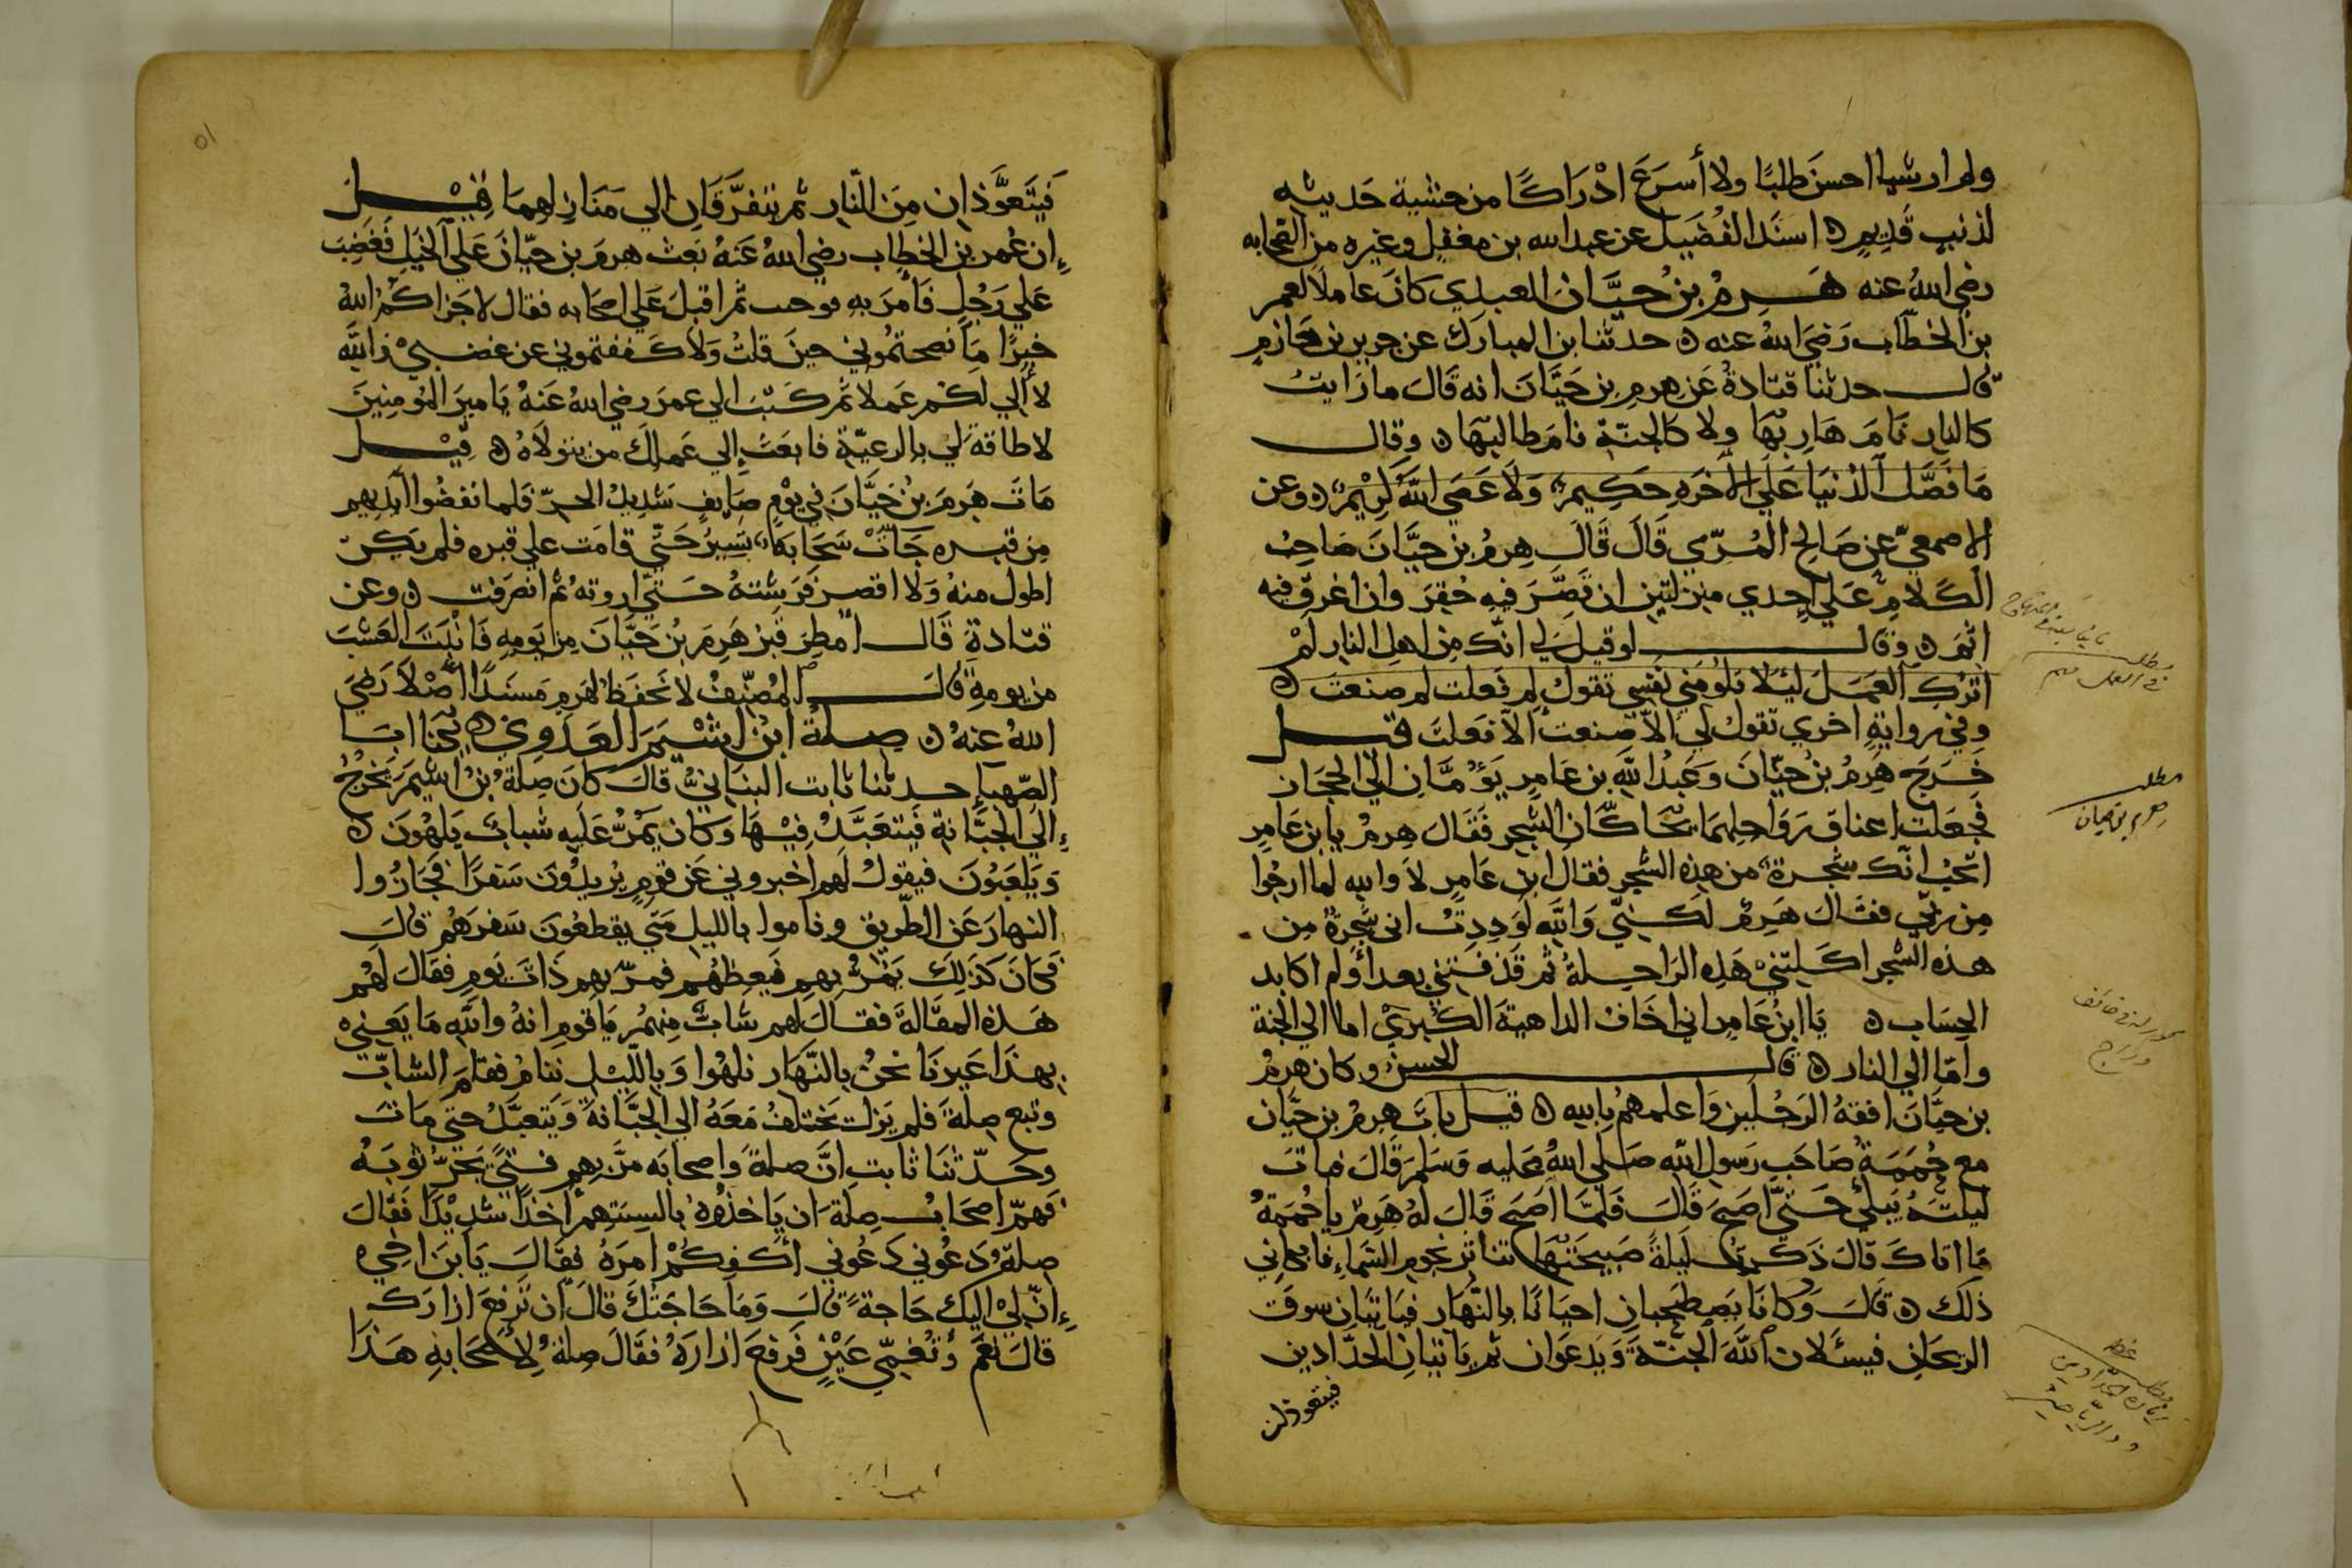 ولم ار شيا احسن طلبًا ولا أسرع ادْرَاكًا من حشية حَديثه
لذنبٍ قَدِيمٍ ه اسنَد الفُضَيل عن عبد الله بن مغفل وغيره من الصحابه
رضي اللهُ عنه هَرِمُ بنُ حيَّان العبدي كانَ عاملًا لعمر
بن الخطّاب رَضيَ اللهُ عنه ه حدثنا بن المبارك عن جرير بن حازم
قال حدثنا قتادةُ عَن هرِمِ بن حَيَّانَ انه قَالَ ما رَايتُ
كالنار نَامَ هَارِبُهَا ولا كَالجنّةِ نامَ طالبُهَا ه وقال
مَا فَضَّل الدُنيَا عَلَي الآخَرهِ حَكِيم وَلَا عَصَى اللهَ كَرِيْمٌ ه وعن
الاصمعيّ عن صَالح المُرّي قَالَ قَالَ هرمُ بن حيَّانَ صَاحِبُ
الكَلامِ عَلَي احدي منزلتَين ان قَصَّرَ فيهِ حُقِرَ وان اغرق فيه
اثِمَ ه وقال لو قيل لِي انّك مِن اهل النار لَمْ
اترُكِ العَمَلَ ليَلَا تلُومَني نفسِي تقولُ لِم فعلت لم صنعتَ ه
وفي روايةٍ اخري تقولُ لي الاّ صنعت الاّ فَعلتَ قيل
خَرَجَ هَرِمُ بنُ حيّانَ وَعَبدُ اللهِ بن عَامرٍ يَؤُمَّانِ الي الحجَازِ
فجَعَلت اعناق رَوَاحِلِهمَا تخَاكَّان الشجر فَقَال هرمُ يا بن عَامِر
اتحِبُ انّك شجرةٌ من هذه الشجر فقال ابن عَامرٍ لَا والله لما ارجُوا
مِن ربّي فقالَ هَرِمُ لَكنّي وَاللهِ لَوَدِدتُ اني شجَرةٌ مِن
هذه الشجر اكَلتنيْ هَذه الراحِلةُ ثم قَذفَتني بعرا ولم اكابد
الحِسَاب ه يَا ابنُ عَامِر اني اخَافُ الداهيَةَ الكُبرَيْ اما الي الجنة
وامّا الي النار ه قال الحسن وكان هرمُ
بن حيَّانَ افقهُ الرَجُلين وَاعلمهمُ بالله ه قيل بات هِرمُ بن حيَّان
مع حُمَمَةَ صَاحَب رَسول اللهِ صَلي اللهُ عَليه وَسَلمَ قَالَ فبَاتَ
ليلتَهُ يَبكيْ حَتيّ اصبَحَ قَالَ فَلمَّا اصبَحَ قَالَ لهُ هَرِمُ يا حُمَمةُ
مَا ابكاكَ قالَ ذَكَرتُ لَيلةً صَبيحَتُهَا تناثر نجوم السَماءِ فابكاني
ذلكَ ه قَالَ وَكَانَا يَصطَحبان احيَانًا بالنَّهَار فيَاتيَان سوقَ
الريحَانِ فيسئَلان اللهَ الجنّةَ وَيَدعَوَان ثم يَاتيَانِ الحدّادين
فيتعوذان
مطلب
هرم بن حيان
مطلب
٥١
فَيَتَعَوَّذَان مِنَ النّارِ ثم يتفرَّقَانِ الي مَنَازِلهِمَا قِيْل
إن عُمر بن الخطاب رضي اللهُ عَنهُ بَعث هرمَ بن حيّانَ عَلي الخَيلِ فَغَضِبَ
عَلي رَجُلٍ فَامرَ به فوجب ثم اقبلَ عَلي اصحَابه فقال لاجَزاكُمُ اللهُ
خيرًا مَا نصحتمُوني حينَ قلتُ وَلا كَففتموني عن غضبيْ والله
لا ألي لكُم عَملًا ثم كَتبَ الي عمرَ رضي اللهُ عَنهُ يَا ميرَ المُؤمِنِينَ
لا طاقةَ لي بالرعيّةِ فابعَث إلي عَملِكَ من يتولاَهُ ه قِيْل
مَاتَ هَرِمَ بنُ حَيَّانَ في يَوْمٍ صَايفٍ شَديدُ الحرّ فلما نفضُوا ايديهم
مِن قبره جَاتْ سَحَابَة تسِيرُ حَتّي قامَت علي قبره فلم يَكن
اطول منهُ وَلا اقصر فَرَشتهُ حَتيّ اروته ثم انصَرفت ه وعن
قتادة قَال امطِر قَبرُ هَرِمَ بنُ حَيَّانَ مِن يَومِهِ فَانبَتَ العَشْبَ
من يومِهِ قالَ المُصنّفُ لا نَحفَظُ لهَرِمِ مَسنَدًا اصْلًا رَضيَ
اللهُ عَنهُ ه صِلةُ ابنُ اشْيَمَ العَدَويِ ه حدّثنا ابا
الصّهبا حدثنا ثابت البنَانيُّ قالَ كان صِلةُ بنُ اشيَمَ يَخْرُجُ
إلَي الجَبّانةِ فَيتعَبَّدُ فِيْهَا وَكَانَ يَمُرُّ عَلَيهِ شبابٌ يَلهُونَ ه
وَيَلعَبُونَ فيقولُ لَهم اخبروني عَن قومٍ يُرِيدُونَ سَفرًا فَجَارُوا
النهارَ عَن الطّريق وناموا بالليل مَتي يقطعُونَ سَفرَهُم قالَ
فكانَ كَذلِكَ يَمرُّ بهم فيَعِظهُم فمرّ بهم ذَاتَ يَومٍ فقَالَ لَهُم
هَذهِ المقَالةَ فقالَ لهم شَابٌ مِنهُم يَا قَومِ انهُ واللهِ مَا يَعنيْ
بهذَا غَيرَنَا نحنُ بالنّهَار نلهُوا وَباللّيْلِ ننامُ فقَامَ الشابّ
وتبع صِلةَ فلم يَزل يَختلِفُ مَعَهُ الي الجبّانةِ وَيَتعَبّدُ حتي مَاتَ
وحَدّثنَا ثابت إنَّ صلةَ واصحابَه مرَّ بِهِم فتيً يَجرّ ثوبَهُ
فهَمّ اصحَابُ صِلةَ ان يَاخذُوهُ بالسِنتهم اخذًا شَديْدًا فَقالَ
صِلةُ دَعُوني دَعُوني اكفِكُمْ امرَهُ فقَالَ يَا بنَ اخيْ
إنّ ليْ اليك حَاجةً قالَ وَمَا حَاجَتُكَ قالَ ان تَرفعَ ازارَكَ
قالَ نَعَم وَنُعْمي عَيْنٍ فَرفعَ ازارَهُ فقَالَ صلةُ لِأصْحَابهِ هَذَا